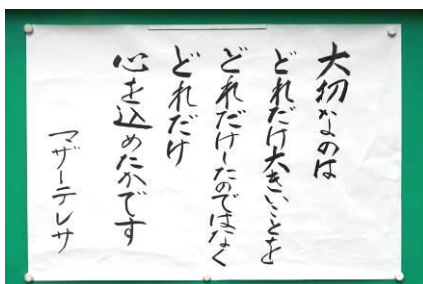 大切なのは
どれだけ大きいことを
どれだけしたのではなく
どれだけ
心を込めたかです
マザーテレサ